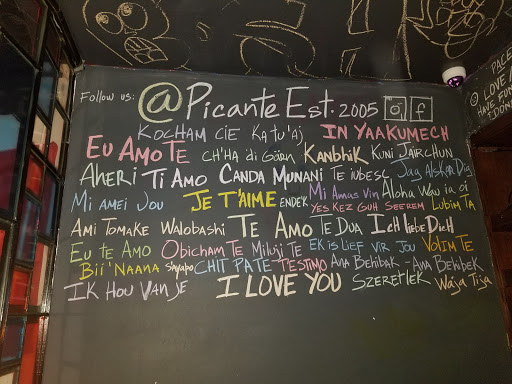 Follow us: @Picante Est. 2005
KOCHAM CIE Ka tu'aj IN YAAKUMECH
Eu Amo Te CH'HA di Garn KANBHIK KUNI JAIRCHUN
Aheri Ti Amo CANDA MUNANI TE iUBESC Jag Alskar Dig
Mi amei Jou JE T'AIME ENDE'K Mi Amas Vin Aloha Wau ia oi
Yes Kez Guh Seerem LUBIM TA
Ami Tomake Walobashi TE AMO TE DUA ICH LIEBE DICH
Eu te Amo Obicham Te Miluji Te EK is LIEF VIR JOU VOLIM TE
Bii 'NAANA CHIT PATE TESTIMO Ana Behibak - Ana Behibek
IK HOU VAN JE I LOVE YOU SZERETLEK Waja Tija
PACE
LOVE
HAVE FUN